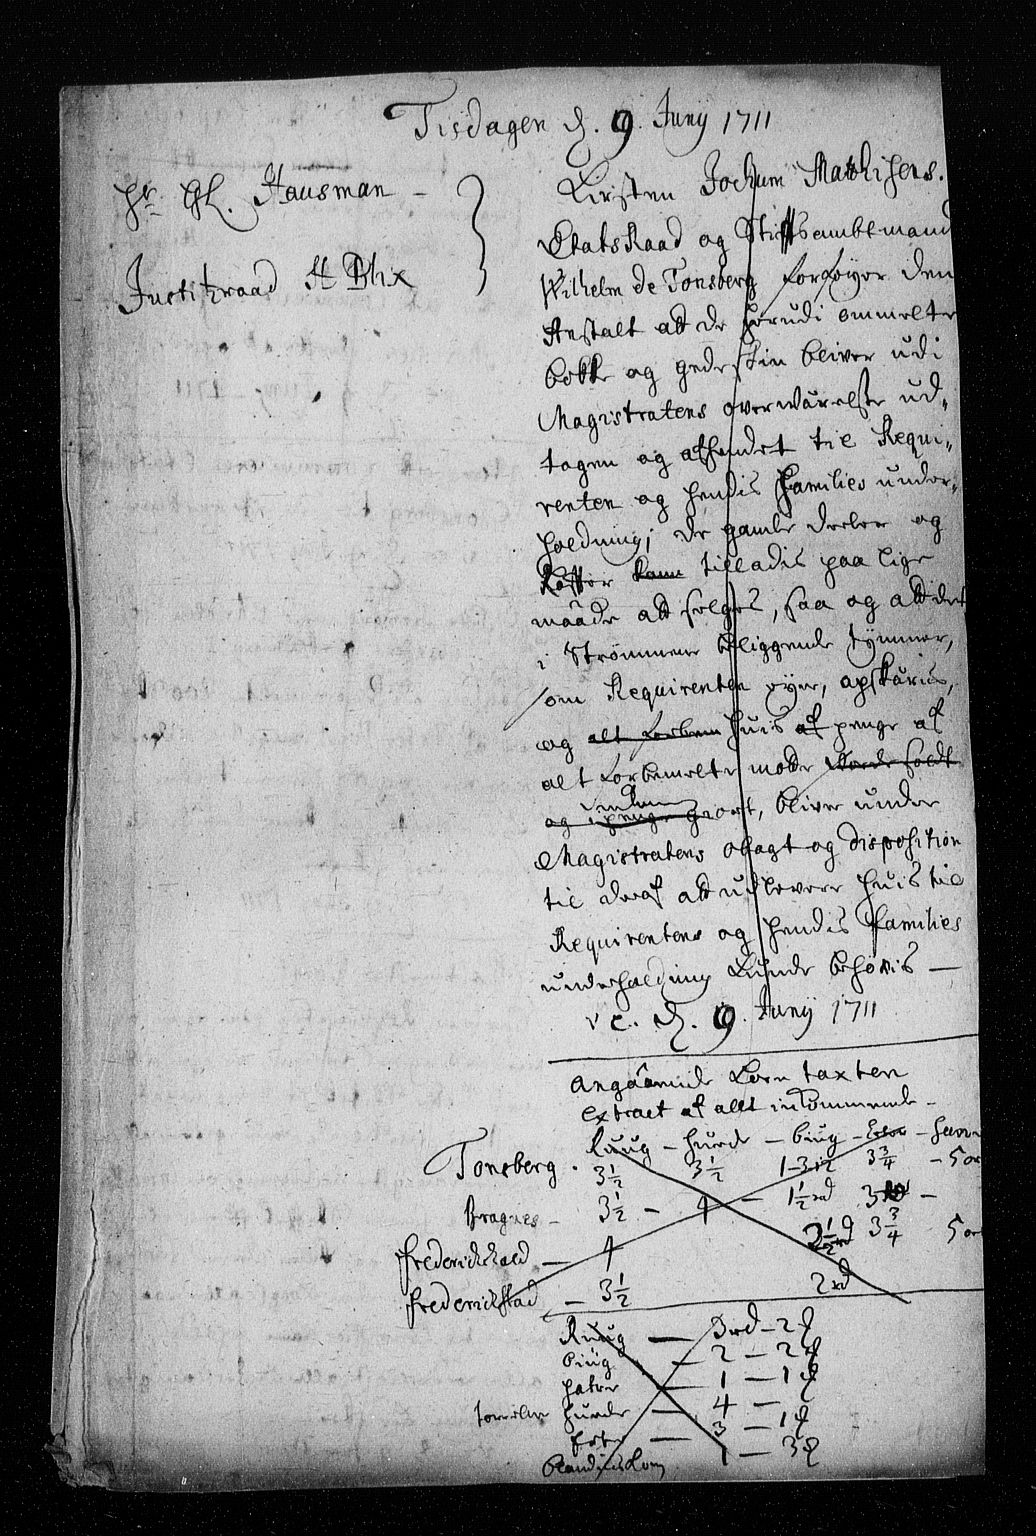 Tisdagen d. 9 Junij 1711
Hr. Gl. Hausman –
Justitzraad H Blix
Kirsten Jochum Mathisens.
EtatsRaad og Stiftsambtmand
Wilhelm de Tonsberg forføyer den
Anstalt att de forudj ommelte
bokke og gedeskin bliver udj
Magistratens overwærelse ud-
tagen og afhendet til Requi-
renten og hendis Families under-
holdning; de gamle deeler og
tilladis paa lige
maade att selges, saa og att det
i Strømmene beliggende tømmer,
som Requirenten eyer, apskæris,
og alt forbem huis af penge af
alt forbemelte
og penge giort, bliver under
Magistratens obagt og disposition
til deraf att udlevere huis til
Requirentens og hendis Families
underholding kunde behøvis –
d. 9. Junij 1711
Angaaende Korn taxten
extract af allt indkommende –
Ruug – huede – biug – – havre
Tonsberg. 3½ 3½ 3¾ – 5 or
Bragnes – 3½ – 4 – 1½ rd
Frederichshald – 4 3¾ 5 or
Frederichstad – 3½ 2 rd
Ruug – 3 rd – 2
biug – 2 – 2
hafre – 1 – 1
huede – 4 –
– 3 – 1
1 – 3